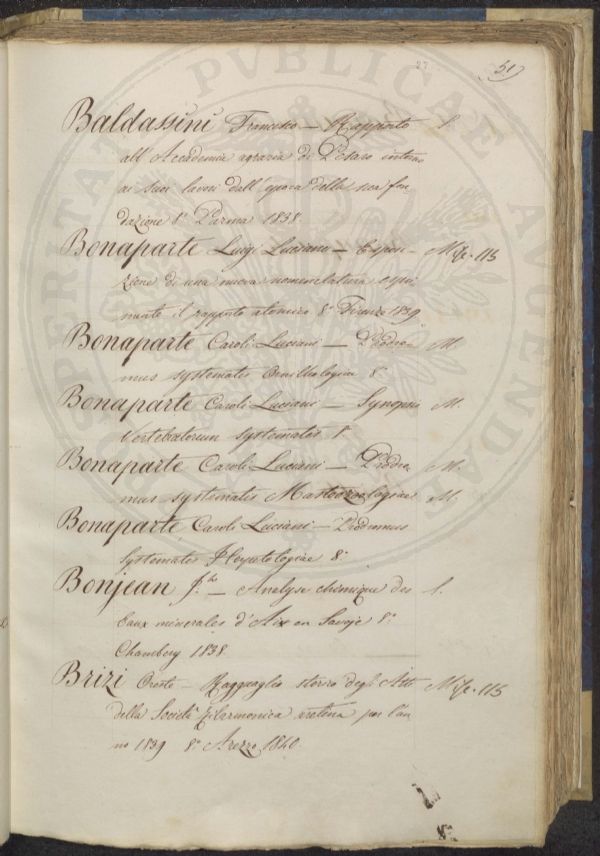 PROSPERITATI PUBLICAE AUGENDAE
27
51)
Baldassini Francesco — Rapporto S.
all'Accademia agraria di Pesaro intorno
ai suoi lavori dall'epoca della sua fon
dazione 8° Parma 1838.
Bonaparte Luigi Luciano — Esposi- Misc. 115
zione di una nuova nomenclatura espri
mente il rapporto atomico 8° Firenze 1839
Bonaparte Caroli Luciani — Prodro- M
mus systematis Ornithologiae 8°
Bonaparte Caroli Luciani — Synopsis M.
Vertebratorum systematis 8°
Bonaparte Caroli Luciani — Prodro- M.
mus systematis Mastozoologiae M.
Bonaparte Caroli Luciani — Prodromus
Systematis 8°
Bonjean J.h — Analyse chimique des S.
Eaux minerales d'Aix en Savoje 8°
Chambery 1838
Brizi Oreste — Ragguaglio storico degli Atti Misc. 115
della Società Filarmonica aretina per l'an
no 1839 8° Arezzo 1840.